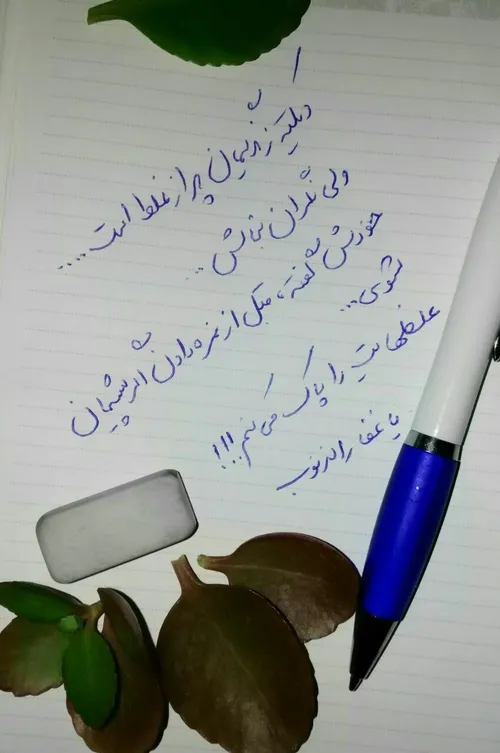 دیکته زندگیمان پر از غلط است....
ولی نگران نباش...
خودش گفته، قبل از نمره دادن اگر پشیمان
شوی...
غلطهایت را پاک می کنم!!!
یا غفار الذنوب